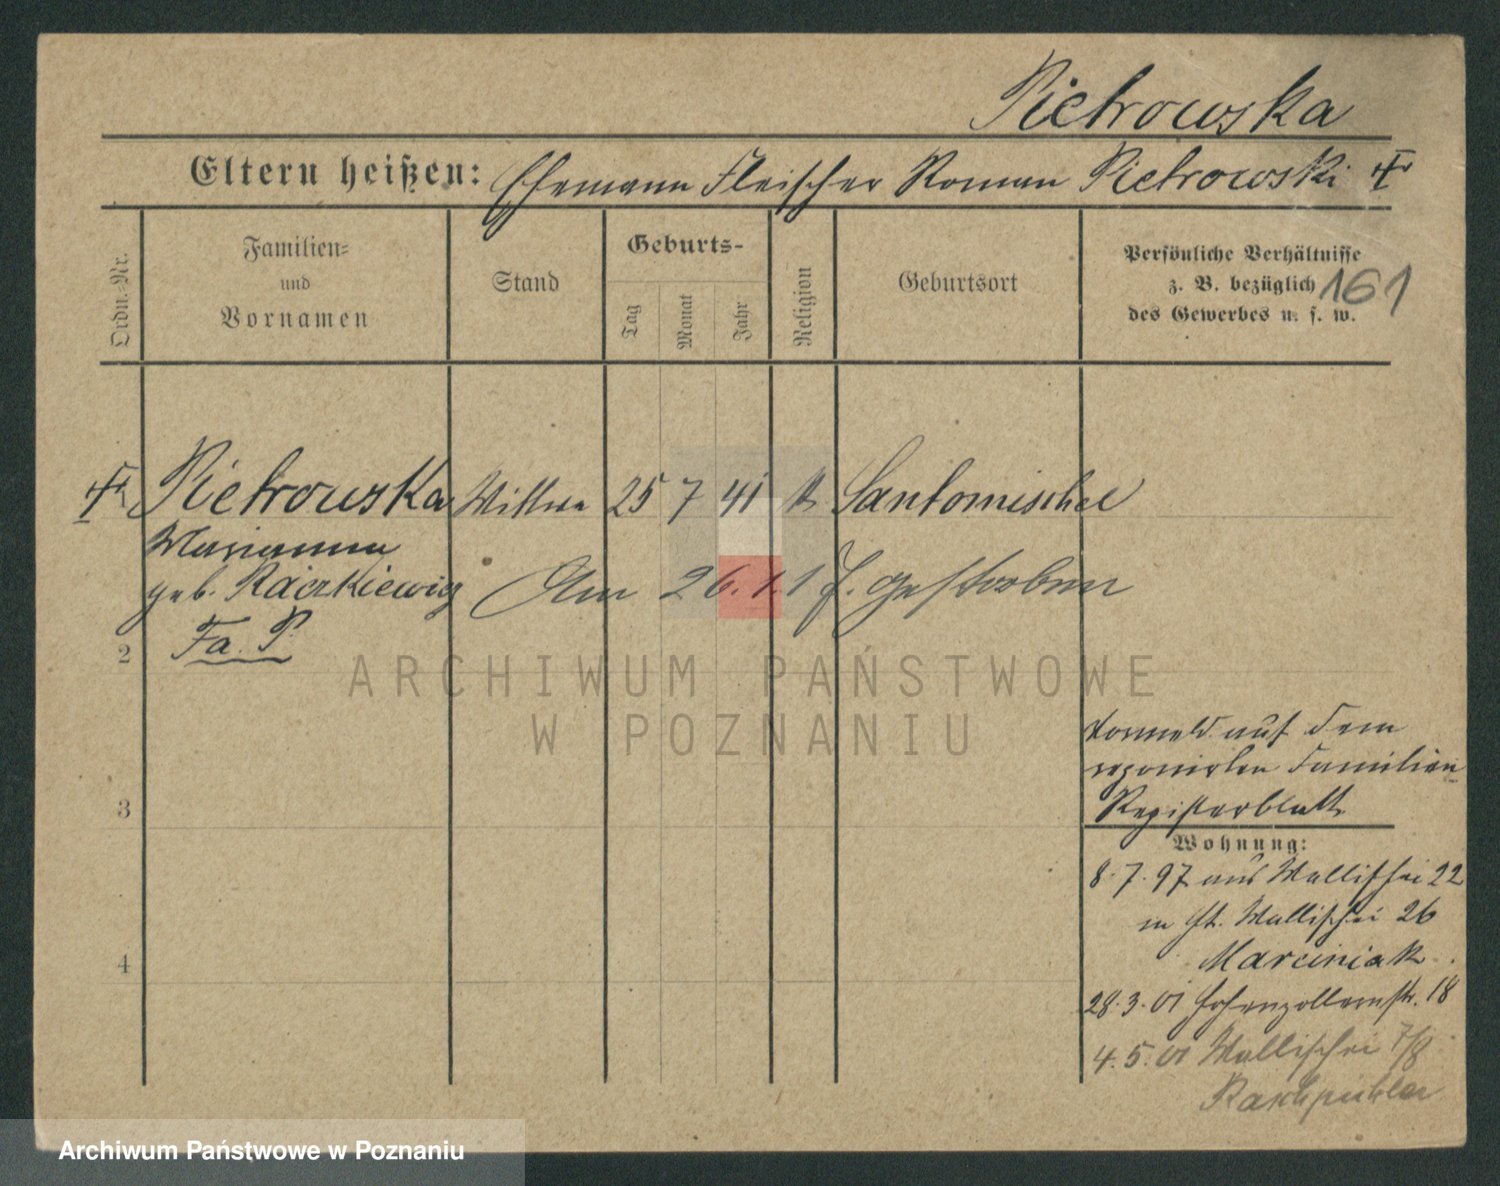 Pietrowska
Eltern heißen: Ehemann Fleischer Roman Pietrowski †
Ordn. Nr.
Familien-
und
Vornamen
Stand
Geburts-
Tag
Monat
Jahr
Religion
Geburtsort
Persönliche Verhältnisse
z. B. bezüglich
des Gewerbes u. s. w.
161
† Pietrowska Wittwe 25 7 41 k Santomischel
Marianna
geb. Raczkiewicz Am 26.1.1 gestorben
Fa. P.
2
ARCHIWUM PAŃSTWOWE
W POZNANIU
Vormeld. auf dem
reponirten Familien-
Registerblatt
3
Wohnung:
8.7.97 aus Wallischei 22
in St. Wallischei 26
Marciniak.
4
28.3.01 Hohenzollernstr. 18
4.5.01 Wallischei 7/8
Archiwum Państwowe w Poznaniu